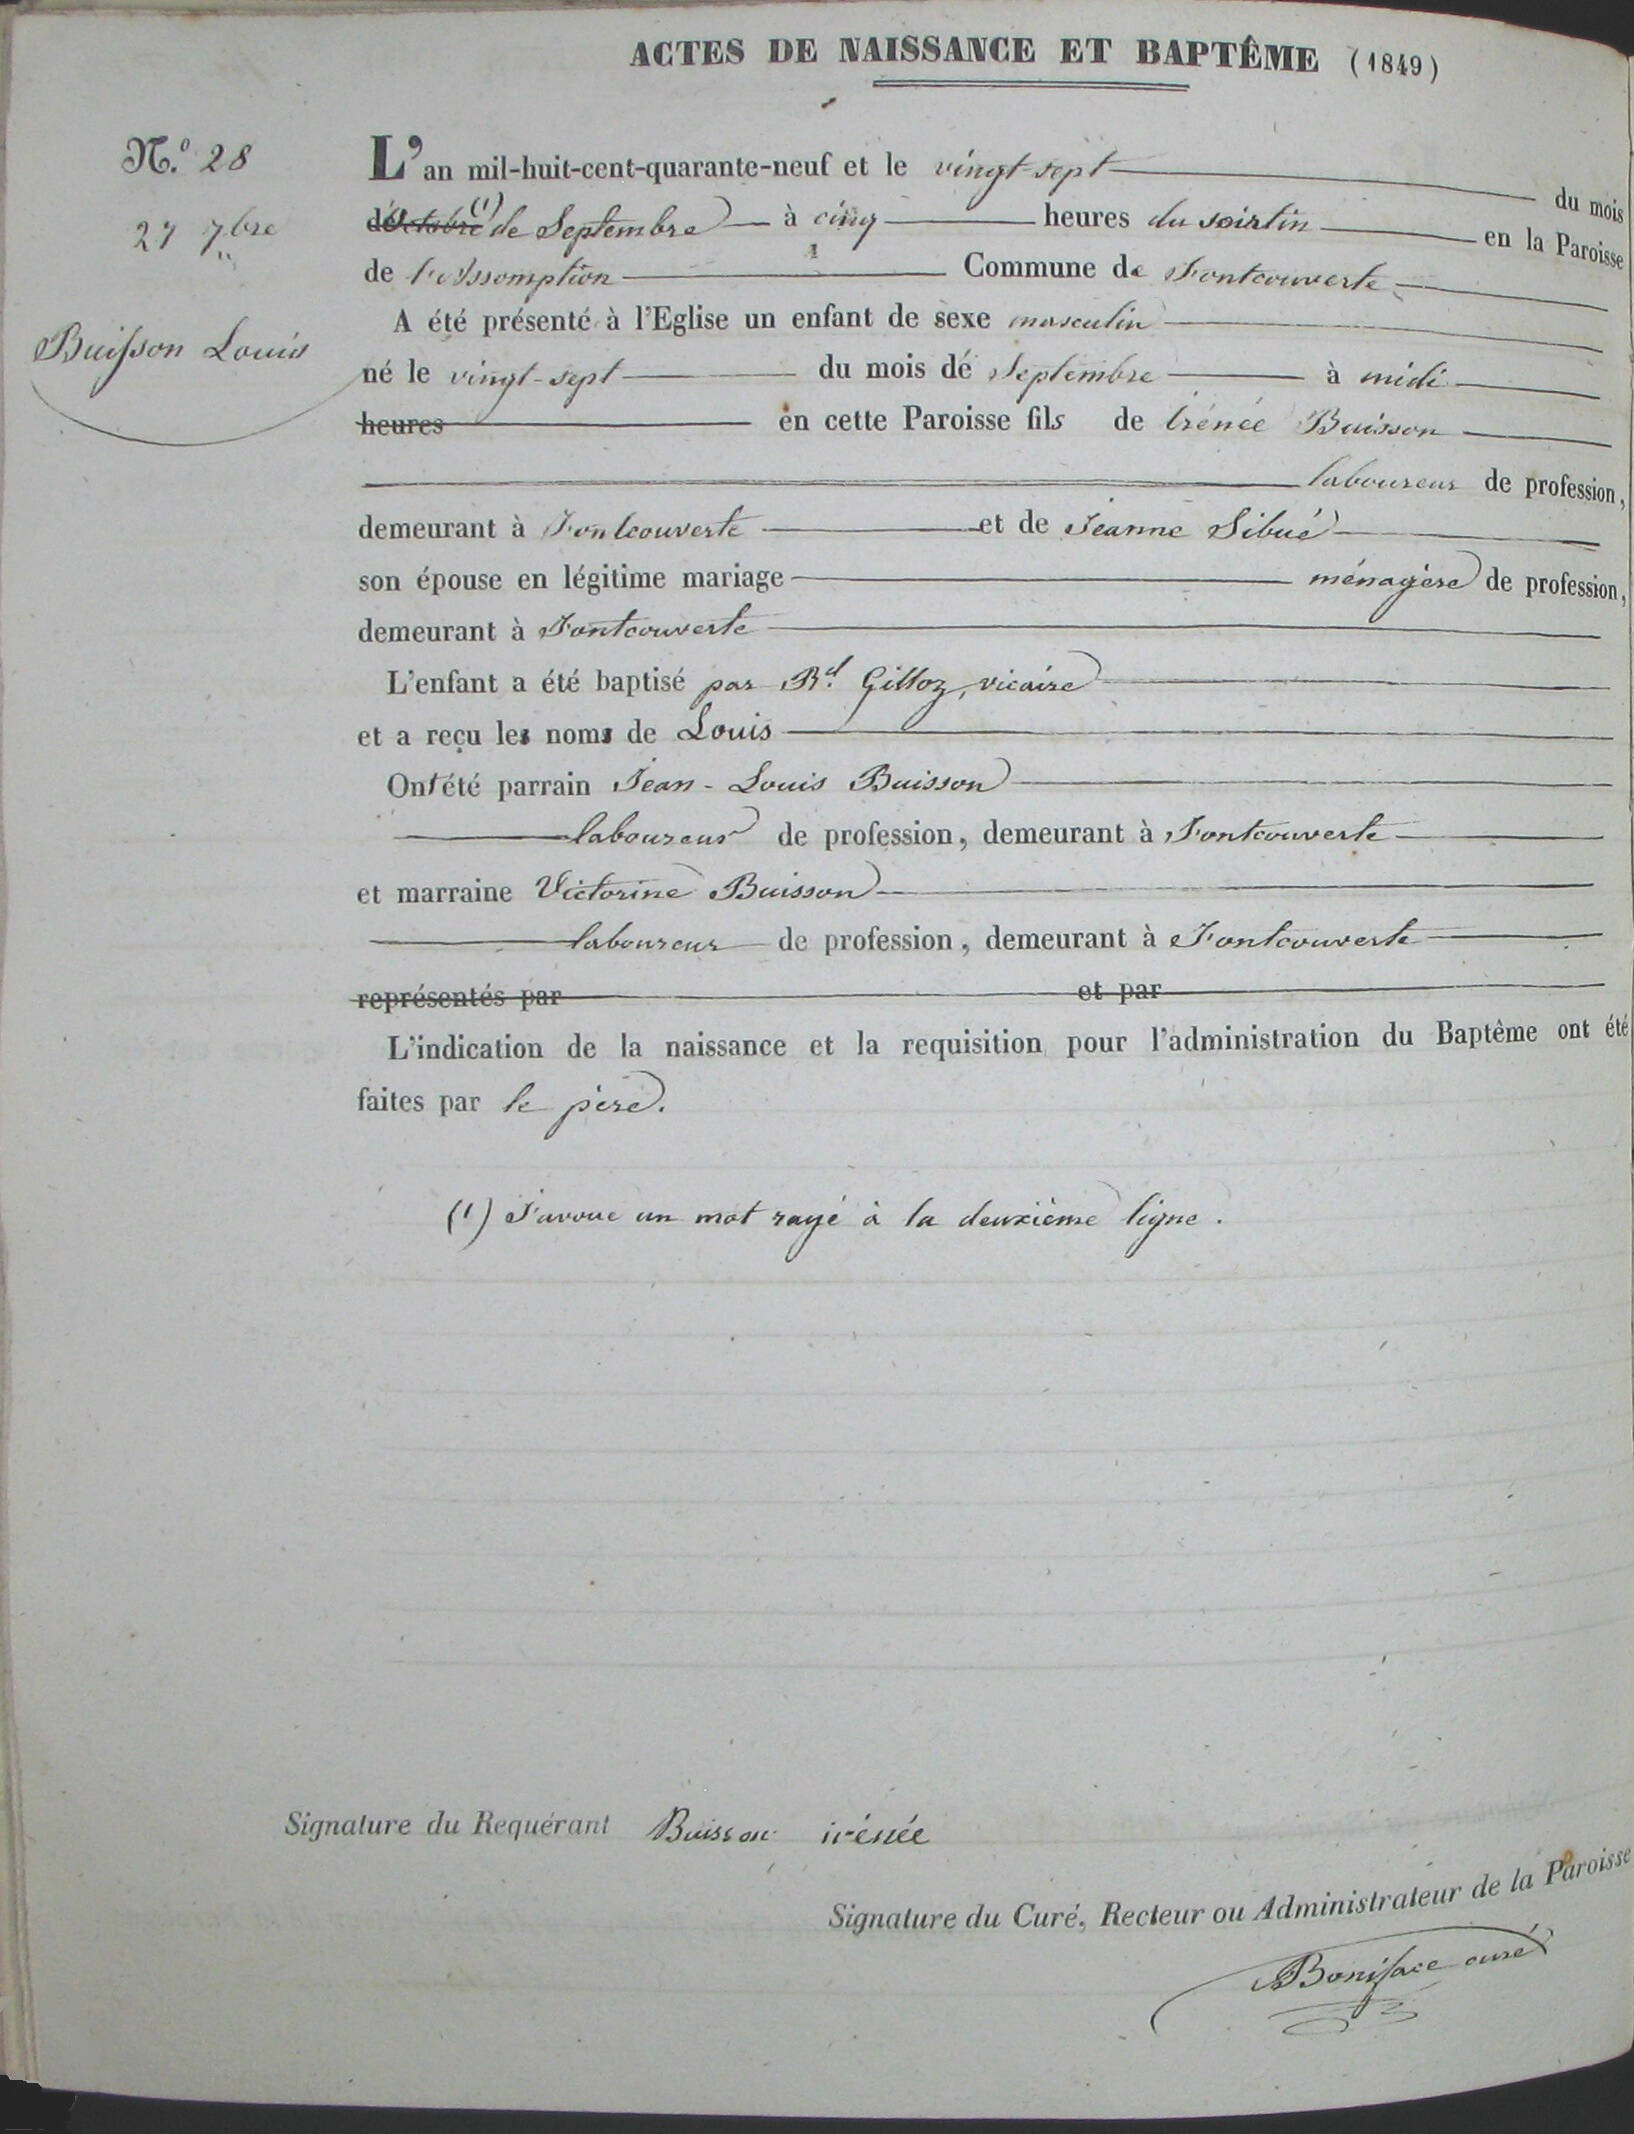 ACTES DE NAISSANCE ET BAPTÊME (1849)
N.° 28
27 7bre
Buisson Louis
L'an mil-huit-cent-quarante-neuf et le vingt-sept du mois
d'Octobre (1) de Septembre à cinq heures du soir en la Paroisse
de l'Assomption Commune de Fontcouverte
A été présenté à l'Eglise un enfant de sexe masculin
né le vingt-sept du mois de Septembre à midi
heures en cette Paroisse fils de Irénée Buisson
laboureur de profession,
demeurant à Fontcouverte et de Jeanne Sibué
son épouse en légitime mariage ménagère de profession,
demeurant à Fontcouverte
L'enfant a été baptisé par Rd. Gilloz, vicaire
et a reçu les noms de Louis
Ont été parrain Jean-Louis Buisson
laboureur de profession, demeurant à Fontcouverte
et marraine Victorine Buisson
laboureur de profession, demeurant à Fontcouverte
représentés par et par
L'indication de la naissance et la requisition pour l'administration du Baptême ont été
faites par le père.
(1) J'avoue un mot rayé à la deuxième ligne.
Signature du Requérant Buisson irénée
Signature du Curé, Recteur ou Administrateur de la Paroisse
Boniface curé